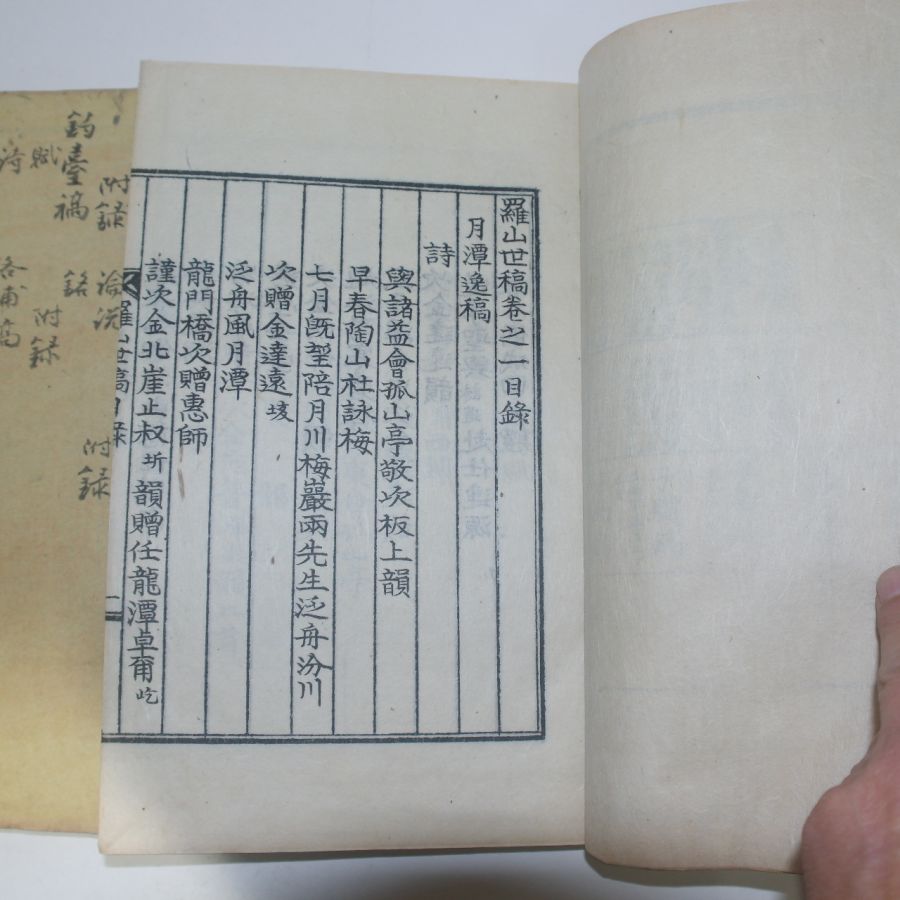 羅山世稿卷之一目錄
月潭逸稿
詩
與諸益會孤山亭敬次板上韻
早春陶山社詠梅
七月旣望陪月川梅巖兩先生泛舟汾川
次贈金達遠垓
泛舟風月潭
龍門橋次贈惠師
謹次金北崖止叔圻韻贈任龍潭卓爾屹
羅山世稿目錄
一
附録
論說
附録
釣臺稿
銘
賦
附録
詩